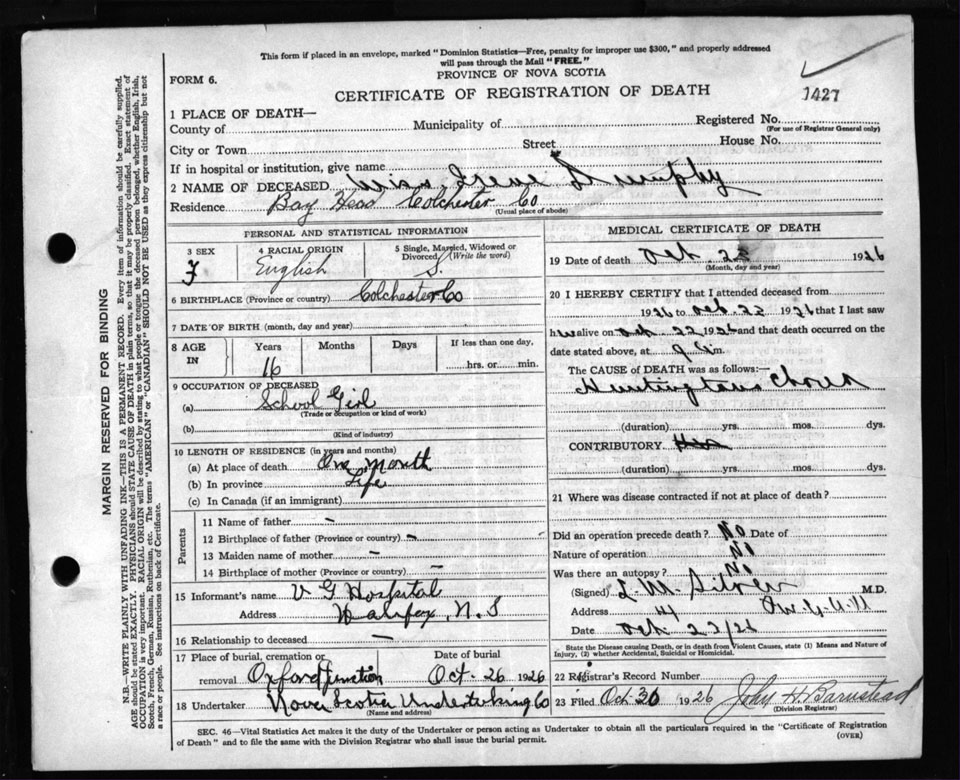 This form if placed in an envelope, marked "Dominion Statistics—Free, penalty for improper use $300," and properly addressed
will pass through the Mail "FREE."
PROVINCE OF NOVA SCOTIA
FORM 6.
CERTIFICATE OF REGISTRATION OF DEATH
1427
1 PLACE OF DEATH—
County of
Municipality of
Registered No.
(For use of Registrar General only)
City or Town
Street
House No.
If in hospital or institution, give name
2 NAME OF DECEASED Miss Irene Dumphy
Residence Bay Head Colchester Co
(Usual place of abode)
PERSONAL AND STATISTICAL INFORMATION
3 SEX
4 RACIAL ORIGIN
5 Single, Married, Widowed or
Divorced (Write the word)
F English S.
6 BIRTHPLACE (Province or country) Colchester Co
7 DATE OF BIRTH (month, day and year)
8 AGE
IN
Years Months Days If less than one day,
16
hrs. or min.
9 OCCUPATION OF DECEASED
(a) School Girl
(Trade or occupation or kind of work)
(b)
(Kind of industry)
10 LENGTH OF RESIDENCE (in years and months)
(a) At place of death One Month
(b) In province Life
(c) In Canada (if an immigrant)
Parents
11 Name of father –
12 Birthplace of father (Province or country) –
13 Maiden name of mother –
14 Birthplace of mother (Province or country) –
15 Informant's name V G Hospital
Address Halifax, N. S
16 Relationship to deceased —
17 Place of burial, cremation or
removal Oxford Junction
Date of burial
Oct. 26 1926
18 Undertaker Nova Scotia Undertaking Co
(Name and address)
MEDICAL CERTIFICATE OF DEATH
19 Date of death Oct. 22 1926
(Month, day and year)
20 I HEREBY CERTIFY that I attended deceased from
1926 to Oct. 22 1926 that I last saw
h alive on Oct 22 1926 and that death occurred on the
date stated above, at 9 m.
The CAUSE of DEATH was as follows:—
Huntingtons Chorea
(duration) yrs. mos. dys.
CONTRIBUTORY
(duration) yrs. mos. dys.
21 Where was disease contracted if not at place of death?
Did an operation precede death? No Date of
Nature of operation No
Was there an autopsy? No
(Signed) M.D.
Address
Date Oct 22/26
State the Disease causing Death, or in death from Violent Causes, state (1) Means and Nature of
Injury, (2) whether Accidental, Suicidal or Homicidal.
22 Registrar's Record Number
23 Filed Oct. 30 1926 John H. Barnstead
(Division Registrar)
SEC. 46—Vital Statistics Act makes it the duty of the Undertaker or person acting as Undertaker to obtain all the particulars required in the "Certificate of Registration
of Death" and to file the same with the Division Registrar who shall issue the burial permit.
(OVER)
MARGIN RESERVED FOR BINDING
N.B.—WRITE PLAINLY WITH UNFADING INK—THIS IS A PERMANENT RECORD. Every item of information should be carefully supplied.
AGE should be stated EXACTLY. PHYSICIANS should STATE CAUSE OF DEATH in plain terms, so that it may be properly classified. Exact statement of
OCCUPATION is very important. RACIAL ORIGIN will be described by stating to what people or tongue the deceased person belonged, whether English, Irish,
Scotch, French, German, Russian, Ruthenian, etc. The terms "AMERICAN" or "CANADIAN" SHOULD NOT BE USED as they express citizenship but not
a race or people. See instructions on back of Certificate.